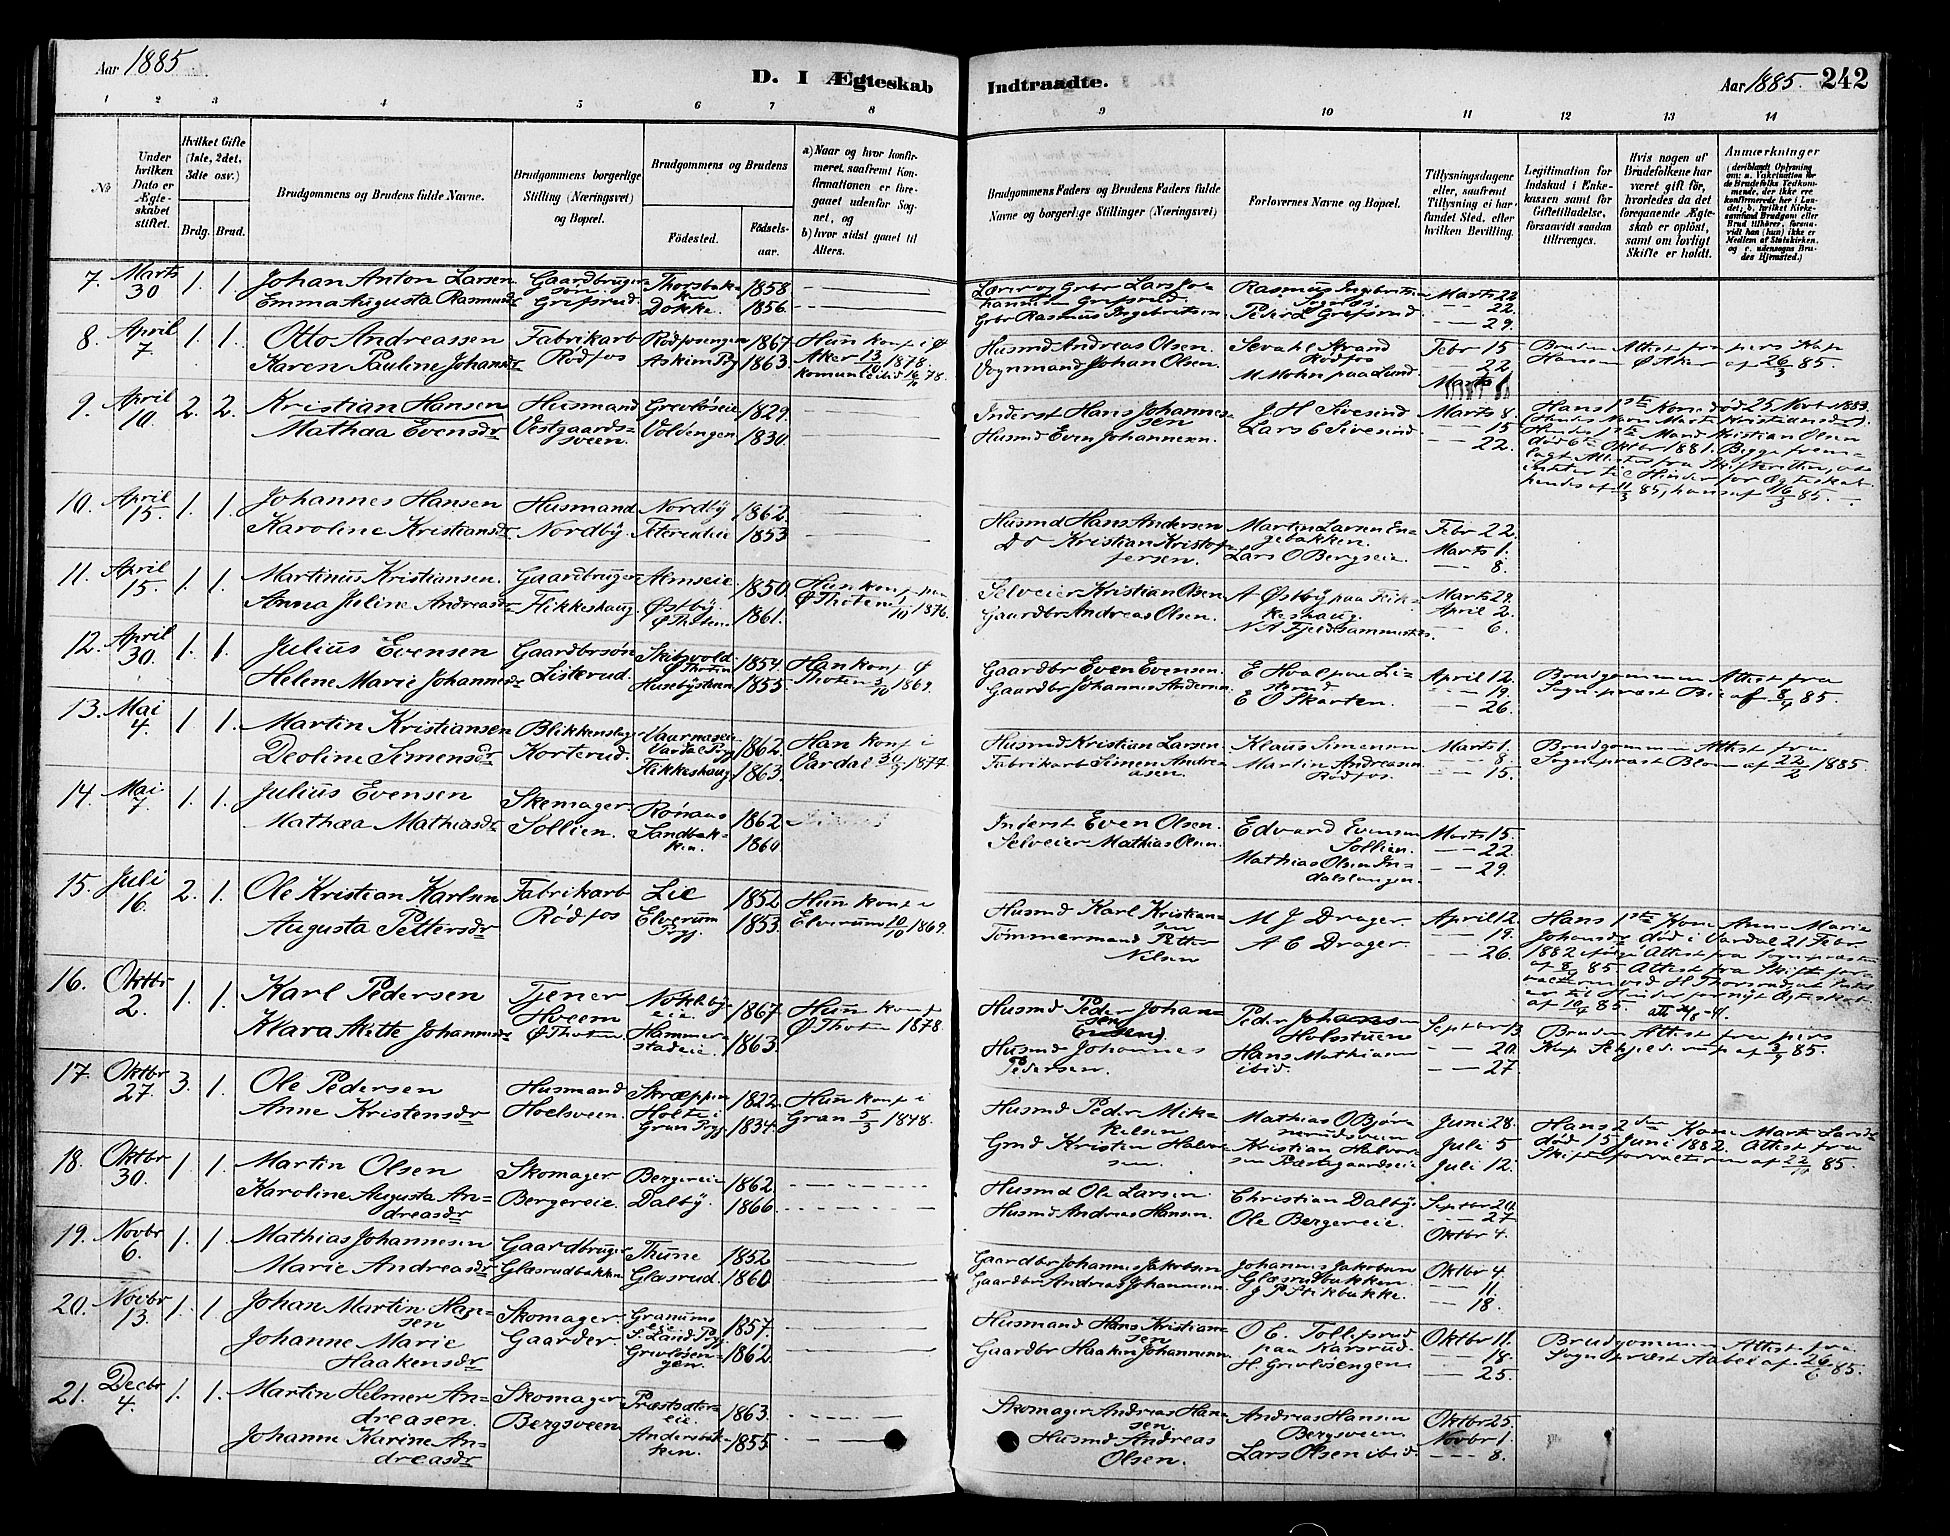 Aar 1885.
D. I Ægteskab
Indtraadte.
Aar 1885. 242
1 2 3 4 5 6 7 8 9 10 11 12 13 14
No
Under hvilken Dato er Ægteskabet stiftet.
Hvilket Gifte (1ste, 2det, 3die osv.)
Brdg. Brud.
Brudgommens og Brudens fulde Navne.
Brudgommens borgerlige Stilling (Næringsvei) og Bopæl.
Brudgommens og Brudens
Fødested.
Fødselsaar.
a) Naar og hvor konfirmeret, saafremt Konfirmationen er foregaaet udenfor Sognet, og
b) hvor sidst gaaet til Alters.
Brudgommens Faders og Brudens Faders fulde Navne og borgerlige Stillinger (Næringsvei)
Forlovernes Navne og Bopæl.
Tillysningsdagene eller, saafremt Tillysning ei har fundet Sted, efter hvilken Bevilling.
Legitimation for Indskud i Enkekassen samt for Giftetilladelse, forsaavidt saadan tiltrænges.
Hvis nogen af Brudefolkene har været gift før, hvorledes da det foregaaende Ægteskab er opløst, samt om lovligt Skifte er holdt.
Anmerkninger
7. Marts 30 1. 1. Johan Anton Larsen Gaardbrugersøn Thorsbakken 1858
Emma Augusta Rasmusdr Grefsrud Dokke 1856
Rasmus Ingebritsen Marts 22
Gbr Rasmus Ingebritsen Peder L Grefsrud — 22. — 29.
8. April 7 1. 1. Otto Andreassen Fabrikarb Rødfosengen 1867 Hun konf i Ø
Karen Pauline Johansdr Rødfos Askim Pg 1863. Aker 13/10 1878.
Husmd Andreas Olsen. Sevahl Strand Rødfos Febr 15
Vognmand Johan Olsen. M Mohn paa Lund — 22. Marts 1.
Ø Aker af 26/3 85.
9. April 10 2. 2. Kristian Hansen Husmand Grevløseie 1829.
Mathæa Evensdr Vestgaardssveen. Voldengen 1830.
Inderst Hans Johannessen J H Sivesind Marts 8.
Husmd Even Johannesen. Lars C Sivesind. — 15 — 22.
Hans 1ste Kone død 25 Novbr 1883.
Hendes 1ste Mand Kristian Olsen
død 6te Oktbr 1881. Begge frem-
lagt Attester fra Skifteretten, at
intet er til Hinder for Ægteskab
hendes af 11/3 85, hans af 16/3 85.
10. April 15. 1. 1. Johannes Hansen Husmand Nordby 1862
Karoline Kristiansdr Nordby. 1853
Husmd Hans Andersen Martin Larsen Engebakken. Febr 22.
Do Kristian Kristoffersen. Lars O Bergseie. Marts 1. — 8.
11. April 15. 1. 1. Martinus Kristiansen. Gaardbruger Almseie. 1850.
Anna Juline Andreasdr Flikkeshaug. Østby. Ø Thoten. 1861. Ø Thoten 1/10 1876.
Selveier Kristian Olsen A Østby paa Flikkeshaug. Marts 29.
Gaardbr Andreas Olsen. April 2 — 6.
12. April 30. 1. 1. Julius Evensen Gaardbrsøn Skibsvold Ø Thoten 1854. Han konf Ø
Helene Marie Johannesdr Listerud. Husebystuen 1855. Thoten 5/10 1869.
Gaardbr Even Evensen. E Hval paa Listerud April 12.
Gaardbr Johannes Andersen E O Skarten. — 19. — 26.
Brudgommens Attest fra
Sogneprest Bie af 8/4 85.
13. Mai 4 1. 1. Martin Kristiansen Blikkenslag Vardal Pg 1862 Han konf i
Deoline Simensdr Korterud. Flikkeshaug 1863. Vardal 30/9 1877.
Husmd Kristian Larsen. Klaus Simensen Marts 1.
Fabrikarb Simen Andreasen. Martin Andreasen Rødfos. — 8. — 15.
Brudgommens Attest fra
Sogneprest Blom af 22/2 1885.
14. Mai 7 1. 1. Julius Evensen Skomager. Rønaas 1862
Mathæa Mathiasdr Sollien. Sandbakken. 1860
Inderst Even Olsen. Edvard Evensen Sollien. Marts 15.
Selveier Mathias Olsen. — 22. — 29.
15. Juli 16. 2. 1. Ole Kristian Karlsen Fabrikarb Lie 1852 Hun konf i
Augusta Pettersdr Rødfos Elverum Pgj. 1853. Elverum 10/10 1869.
Husmd Karl Kristiansen M J Drager. April 12.
Tømmermand Petter Nilsen A C Drager. — 19. — 26.
Hans 1ste Kone Anne Marie
Johansdr død i Vardal 21 Febr
1882 ifølge Attest fra Sognepresten
af 8/4 85. Attest fra Skiftefor-
af 10/4 85.
16. Oktbr 2. 1. 1. Karl Pedersen Tjener Nøklebyeie. 1867. Hun konf
Klara Mette Johannesdr Hveem Ø Thoten. Hammerstadeie. 1863. Ø Thoten 1878
Husmd Peder Johansen Peder Johansen Holsstuen Septbr 13.
Husmd Johannes Pedersen. Hans Mathiasen ibid. — 20. — 27.
17. Oktbr 27. 3. 1. Ole Pedersen Husmand Skræppen 1822. Hun konf i
Anne Kristensdr Hoelsveen. Holte i Gran Pgj. 1834. Gran 5/3 1848.
Husmd Peder Mikkelsen Mathias O Bjørnerudsveen Juni 28.
Gmd Kristen Halvorsen Kristian Halvorsen Præstegaardseie Juli 5 Juli 12.
Hans 2den Kone Marte Larsdr
død 15 Juni 1882. Attest fra
18. Oktbr 30. 1. 1. Martin Olsen Skomager Bergereie 1862.
Karoline Augusta Andreasdr Bergereie. Dalby. 1866.
Husmd Ole Larsen. Christian Dalby Septbr 20.
Husmd Andreas Hansen. Ole Bergereie. — 27 Oktbr 4.
19. Novbr 6. 1. 1. Mathias Johannesen Gaardbruger Thune 1852
Marie Andreasdr Glæsrudbakken Glæsrud. 1860
Gaardbr Johannes Jakobsen Johannes Jakobsen Glæsrudbakken. Oktbr 4.
Gaardbr Andreas Johannesen J P Stikbakke. — 11. — 18.
20. Novbr 13. 1. 1. Johan Martin Hansen Skomager. Granumseie S. Land Pgj 1857.
Johanne Marie Haakensdr Gaarder. Grevløsengen. 1862.
Husmand Hans Kristiansen O C. Tollefsrud paa Karsrud. Oktbr 11.
Gaardbr Haaken Johannesen H. Grevløsengen — 18. — 25.
Brudgommens Attest fra
Sogneprest Aabel af 26/6 85.
21. Decbr 4. 1. 1. Martin Helmer Andreasen. Skomager Præstsætereie. 1863.
Johanne Karine Andreasdr Bergsveen. Andersbakken. 1855
Skomager Andreas Hansen Andreas Hansen Bergsveen. Oktbr 25.
Husmd Andreas Olsen. Lars Olsen ibid. Novbr 1. — 8.